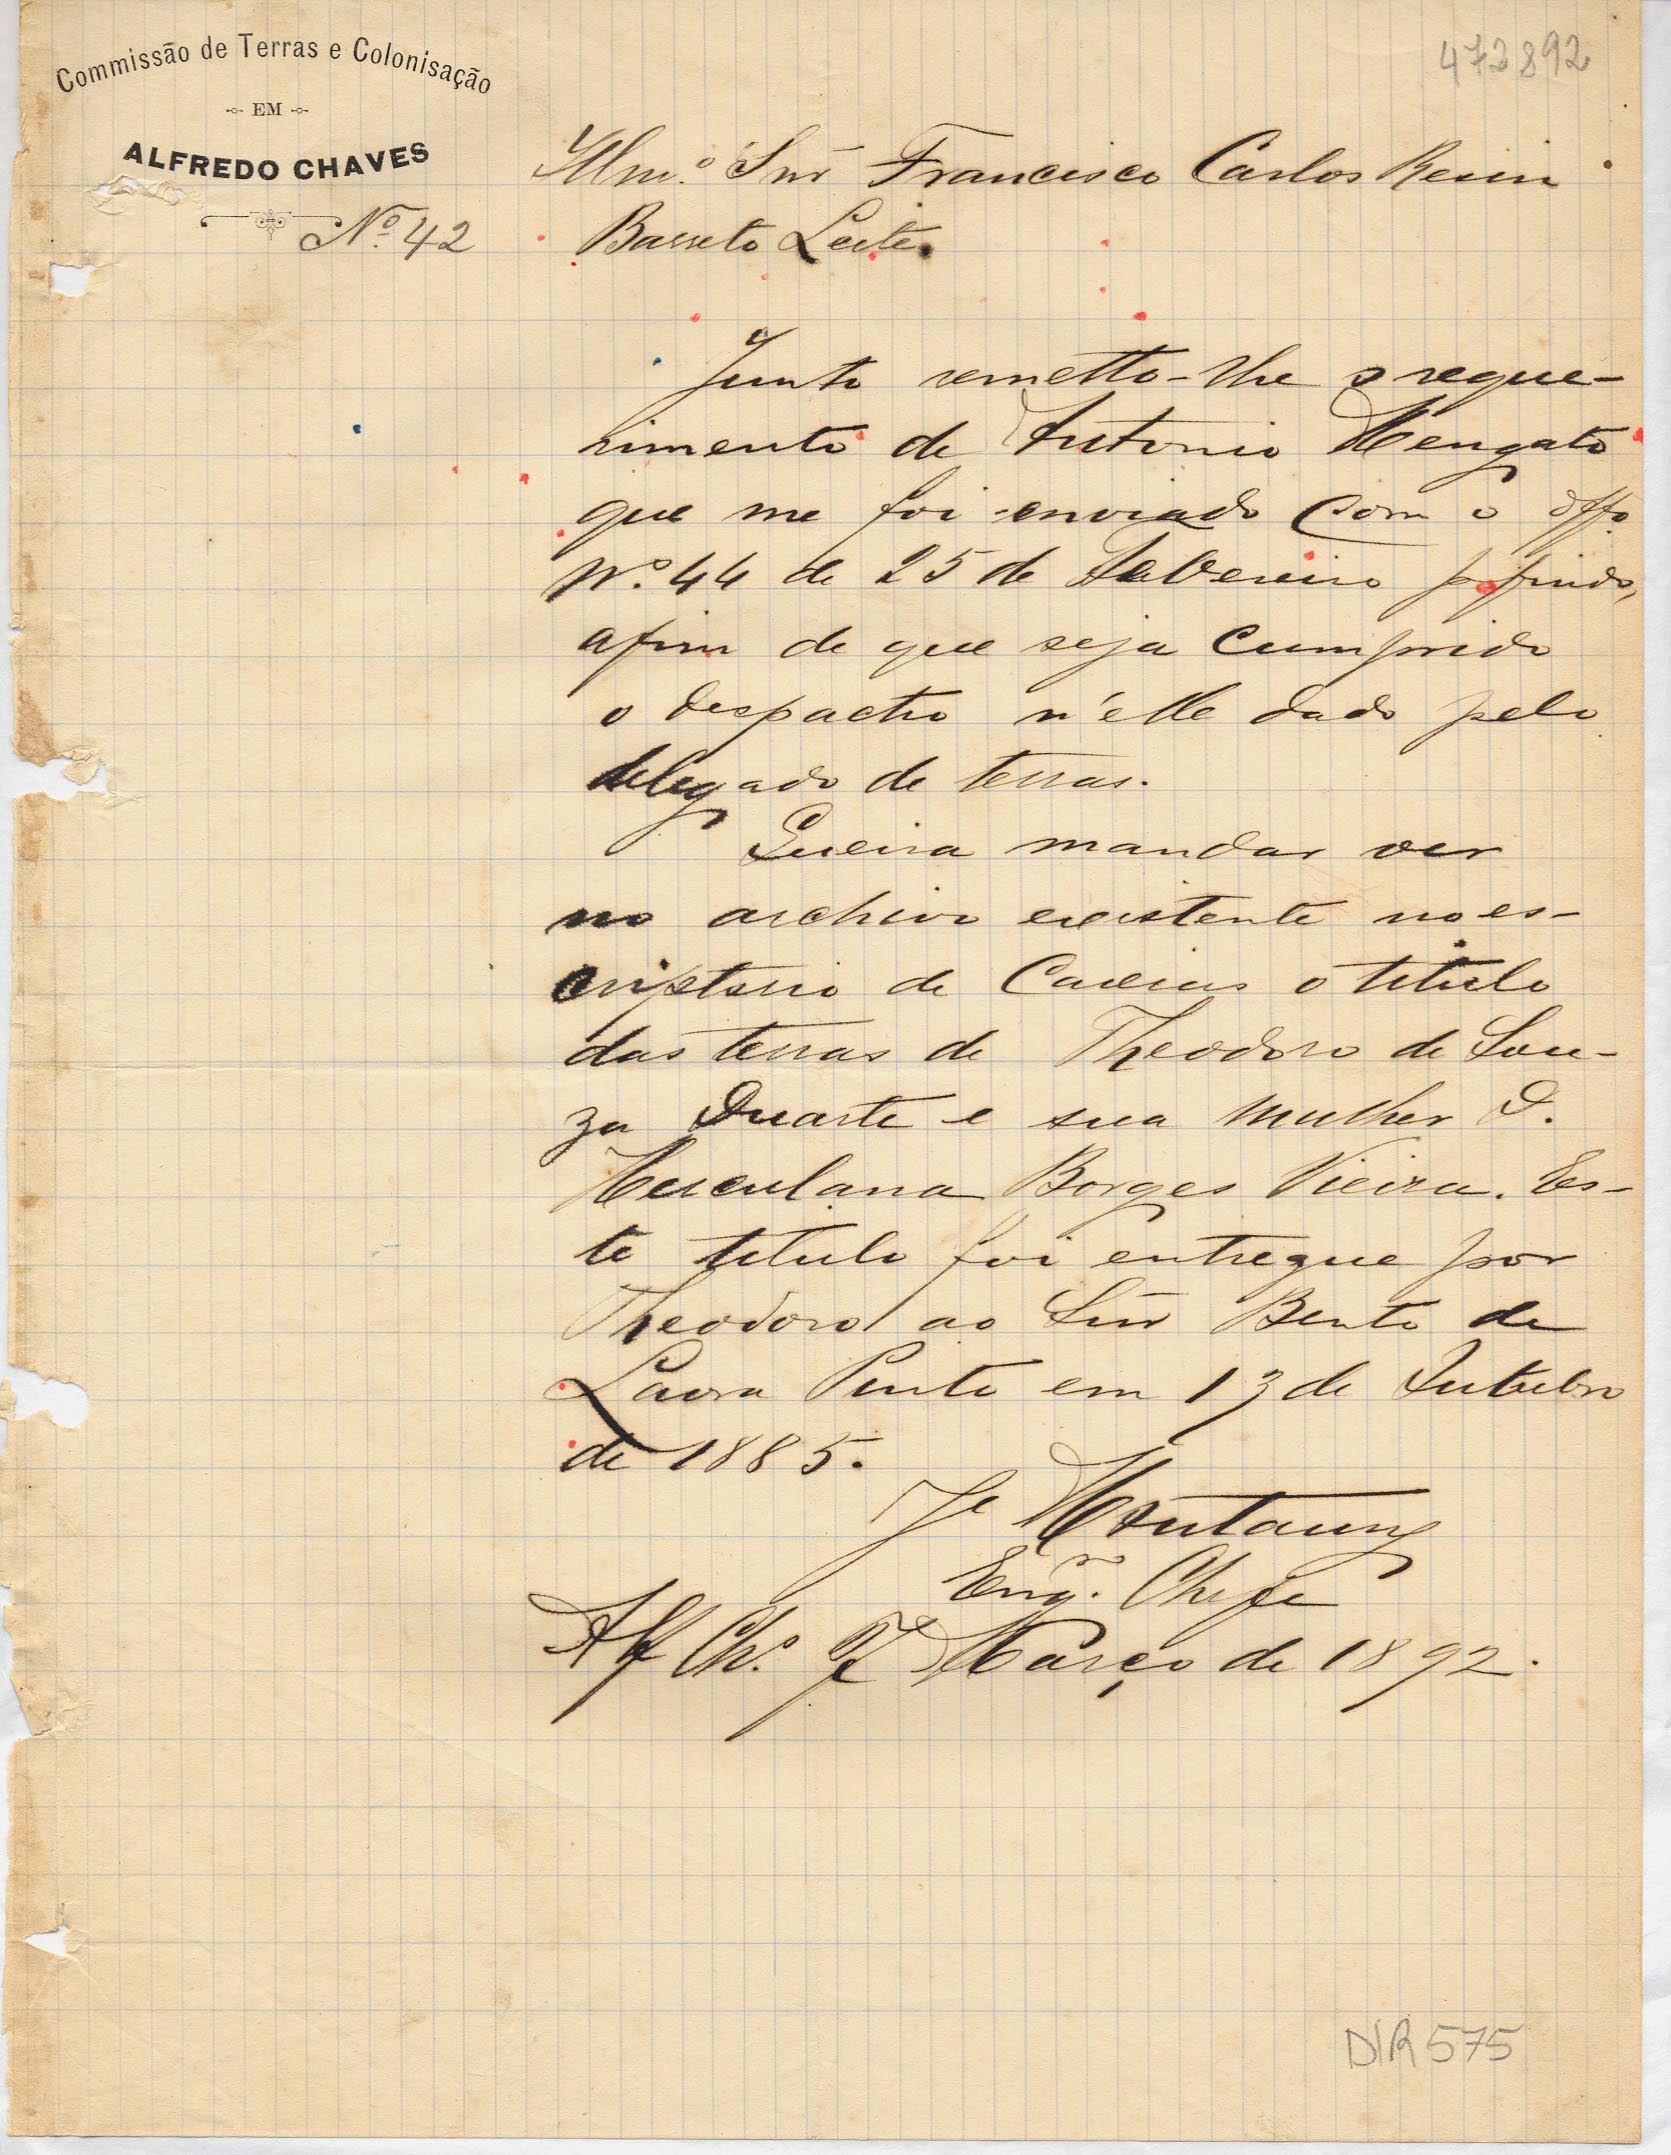 Commissão de Terras e Colonisação
EM
ALFREDO CHAVES
Nº 42
472892
Illmº Snr Francisco Carlos Resin
Barreto Leite.
Junto remetto-lhe o reque-
rimento de Antonio Mengato
que me foi enviado com o offº
Nº 44 de 25 de Fevereiro p findo,
afim de que seja cumprido
o despacho n'elle dado pelo
delegado de terras.
Queira mandar ver
no archivo existente no es-
criptorio de Caxias o titulo
das terras de Theodoro de Sou-
za Duarte e sua mulher D.
Herculana Borges Vieira. Es-
te titulo foi entregue por
Theodoro ao Snr Bento de
Lavra Pinto em 13 de Outubro
de 1885.
Je Montaury
Engº Chefe
Alf Chs 7 Março de 1892.
DIR 575